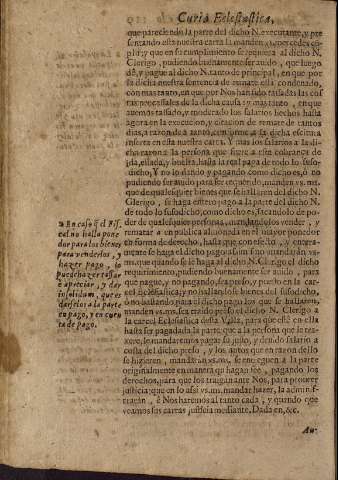 Curia Eclesiastica,
que pareciendo la parte del dicho N. executante, y pre
sentando esta nuestra carta la mandeys vs. ms. por cedes cū
plir; y que en su cumplimiento se requiera al dicho N.
Clerigo, pudiendo buenamente ser auido, que luego
dè, y pague al dicho N. tanto de principal, en que por
dicha nuestra sentencia de remate està condenado,
con mas tanto, en que por Nos han sido tassadas las cos
tas processales de la dicha causa: y mas tanto, en que
auemos tassado, y moderado los salarios hechos hasta
agora en la execucion, y citacion de remate de tantos
dias, a razon de à tanto, conforme à la dicha escitura
inserta en esta nuestra carta. Y mas los salarios à la di-
cha razon à la persona que fuere à essa cobrança de
ida, estada, y buelta, hasta la real paga de todo lo suso-
dicho, Y no lo dando y pagando como dicho es, ò no
pudiendo ser auido para ser requerido, manden vs. ms.
que de qualesquier bienes que se hallaren del dicho N.
Clerigo, se haga entero pago à la parte del dicho N.
de todo lo susodicho, como dicho es, sacandolo de po-
der de qualesquier personas, mandandolos vender, y
rematar à en publica almoneda en el mayor ponedor
en forma de derecho, hasta que con efecto, y entera-
mente se haga el dicho pago: ò sino mandarán vs.
ms. que quando se le haga al dicho N. Clerigo el dicho
requirimiento, pudiendo buenamente ser auido, para
que pague, y no pagando, sea preso, y puesto en la car-
cel Eclesiastica: y no hallandosele bienes del susodicho,
ò no hallando para el dicho pago los que se hallaren,
manden vs. ms. sea traido preso el dicho N. Clerigo à
la carcel Eclesiastica desta Villa, para que estè en ella
hasta ser pagada la parte, que à la persona que le tra-
xere, le mandaremos pagar su justo, y deuido salario à
costa del dicho preso, y los autos que en razon dello
se hizieren, mandarán vs. ms. se entreguen à la parte
originalmente en manera que hagan feè, pagando los
derechos, para que los traigan ante Nos, para proueer
justicia: que en lo assi vs. ms. mandar hazer, la adminis-
trarán, è Nos haremos al tanto cada, y quando que
veamos sus cartas justicia mediante. Dada en, &c.
Au-
En caso q̃ el Fis-
cal no halla pone
dor para los bienes
para venderlos, y
hazer pago, lo
puede hazer tassar
è apreciar, y dar
insolidum, que es
darselos à la parte
en pago, y en cuen
ta de pago.